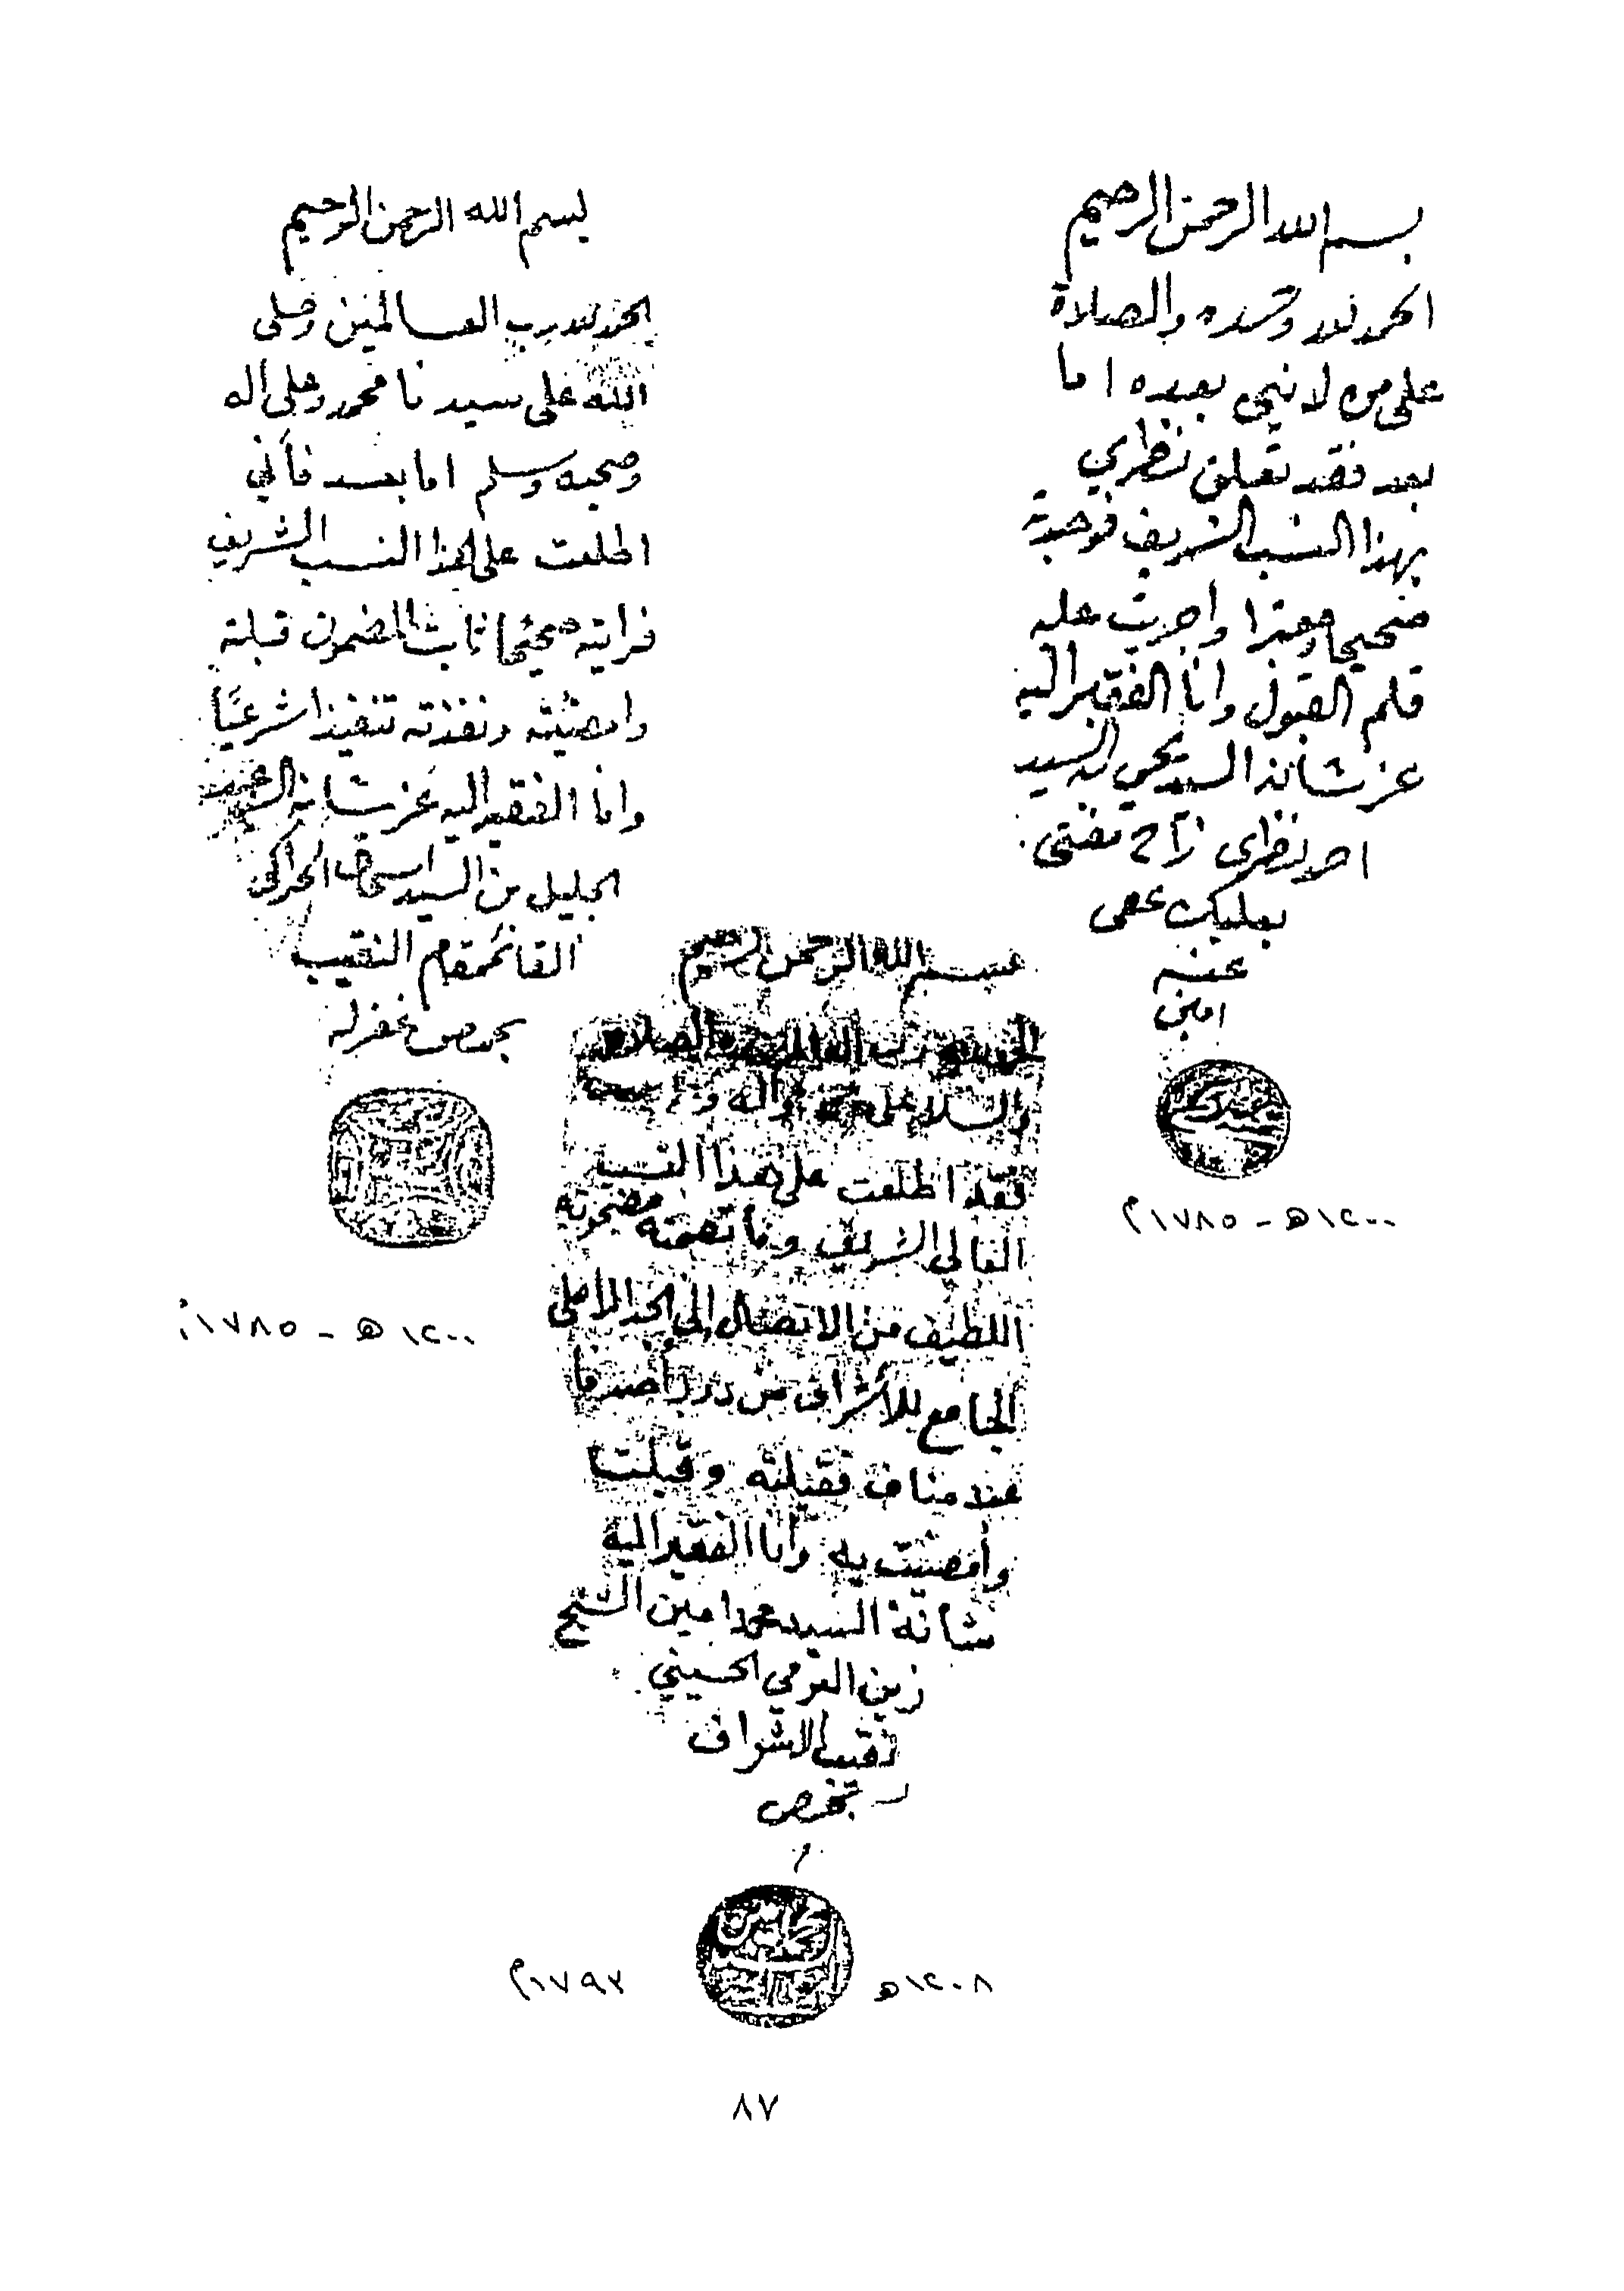 بسم الله الرحمن الرحيم
الحمد لله وحده والصلاة
على من لا نبي بعده اما
بعد فقد تعلق نظري
بهذا النسب الشريف فوجدته
صحيحا ومعتبرا واجريت عليه
قلم القبول وانا الفقير اليه
عز شانه السيد يحيى السيد
مفتي
بعلبك عفى
عنه
امين
١٢٠٠ هـ - ١٧٨٥ م
بسم الله الرحمن الرحيم
الحمد لله رب العالمين وصلى
الله على سيدنا محمد وعلى اله
وصحبه وسلم اما بعد فأني
اطلعت على هذا النسب الشريف
فرايته صحيحا ثابت المضمون قبلته
وامضيته ونفذته تنفيذا شرعيًا
وانا الفقير اليه عز شانه السيد عبد
الجليل من السيد اسحاق الحراكي
القائمقام النقيب
بحمص غفر له
١٢٠٠ هـ - ١٧٨٥ م
بسم الله الرحمن الرحيم
الحمد لله رب العالمين والصلاة
والسلام على محمد واله
فقد اطلعت على هذا النسب
العالي الشريف وما تضمنه مضمونه
اللطيف من الاتصال الى الجد الأصلي
الجامع للأشراف من درر أصداف
عبد مناف فقبلته وقبلت
وأمضيت به وأنا الفقير اليه
شانه السيد محمد امين الشيخ
زين الحسيني
نقيب الاشراف
بحمص
١٢٠٨ هـ ١٧٩٣ م
٨٧